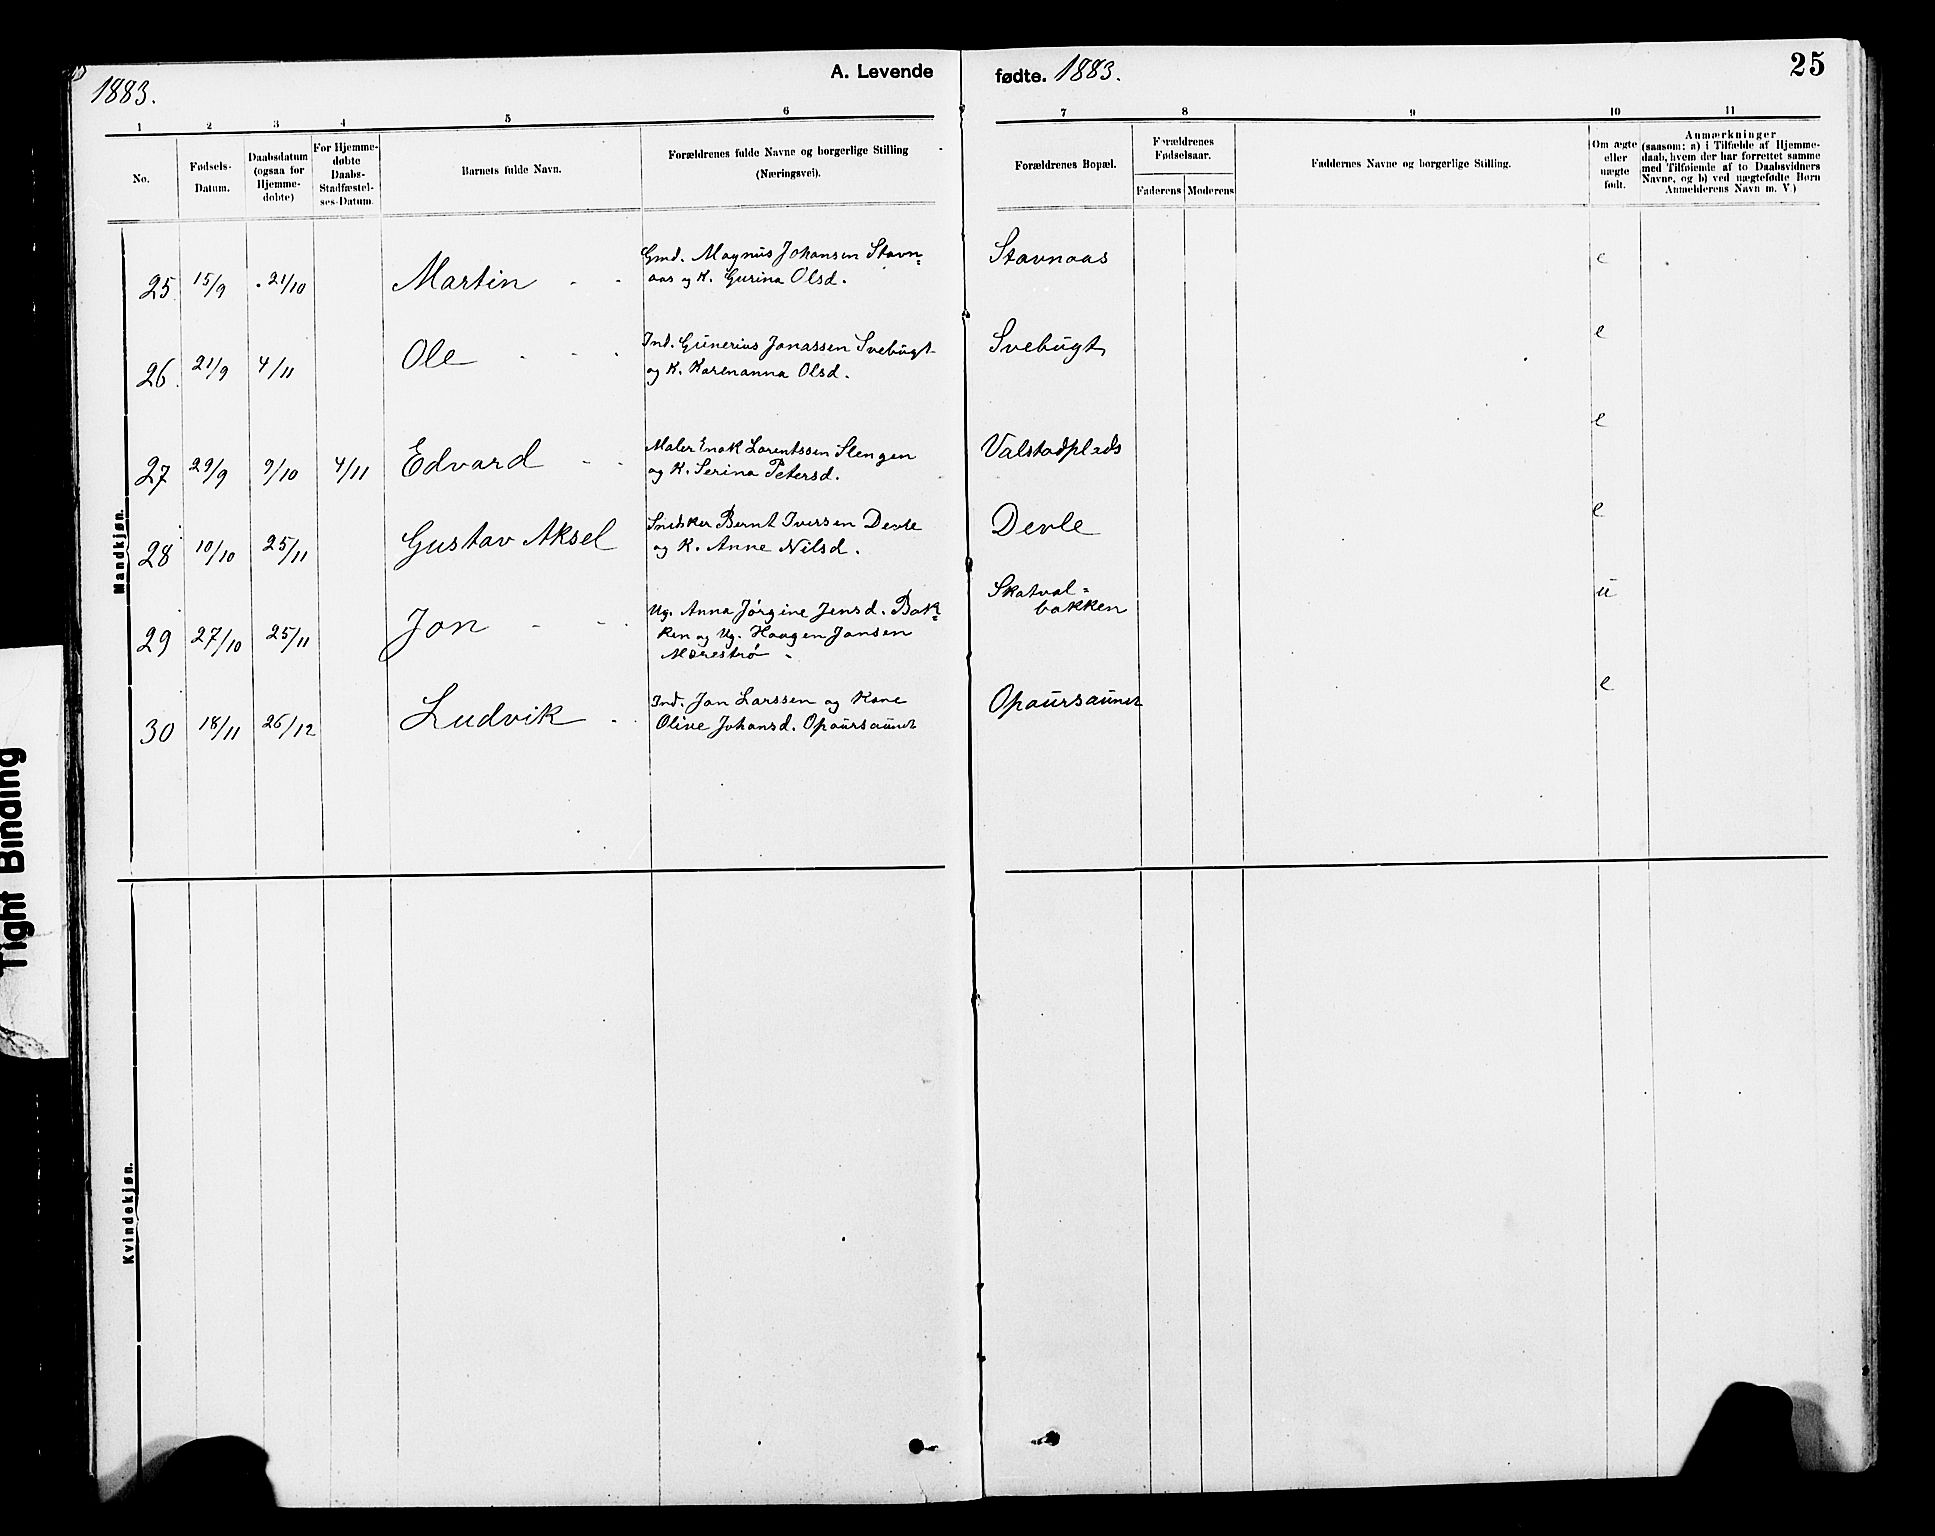 1883.
A. Levende fødte. 1883.
25
1 2 3 4 5 6 7 8 9 10 11
No.
Fødsels-
Datum.
Daabsdatum
(ogsaa for
Hjemme-
døbte)
For Hjemme-
døbte
Daabs-
Stadfæstel-
ses-Datum.
Barnets fulde Navn.
Forældrenes fulde Navne og borgerlige Stilling
(Næringsvei).
Forældrenes Bopæl.
Forældrenes
Fødselsaar.
Faderens Moderens
Faddernes Navne og borgerlige Stilling.
Om ægte
eller
uægte
født.
Anmærkninger
(saasom: a) i Tilfælde af Hjemme-
daab, hvem der har forrettet samme
med Tilføiende af to Daabsvidners
Navne, og b) ved uægtefødte Børn
Anmelderens Navn m. V.)
Mandkjøn.
25 15/9 21/10 Martin
Gmd. Magnus Johansen Stavn=
aas og K. Gurina Olsd.
Stavnaas e
26 21/9 4/11 Ole
Ind. Gunerius Jonassen Svebugt
og K. Karenanna Olsd.
Svebugt e
27 29/9 9/10 4/11 Edvard
Maler Enok Lorentssen Slengen
og K. Serina Petersd.
Valstadplads e
28 10/10 25/11 Gustav Aksel
Snedker Bernt Iversen Devle
og K. Anne Nilsd.
Devle e
29 27/10 25/11 Jon
Ug. Anna Jørgine Jensd. Bak=
ken og Ug. Haagen Jansen
Mærestrø
Skatval=
bakken u
30 18/11 26/12 Ludvik
Ind. Jon Larssen og Kone
Olive Johansd. Opaursaunet
Opaursaunet e
Kvindekjøn.
Tight Binding